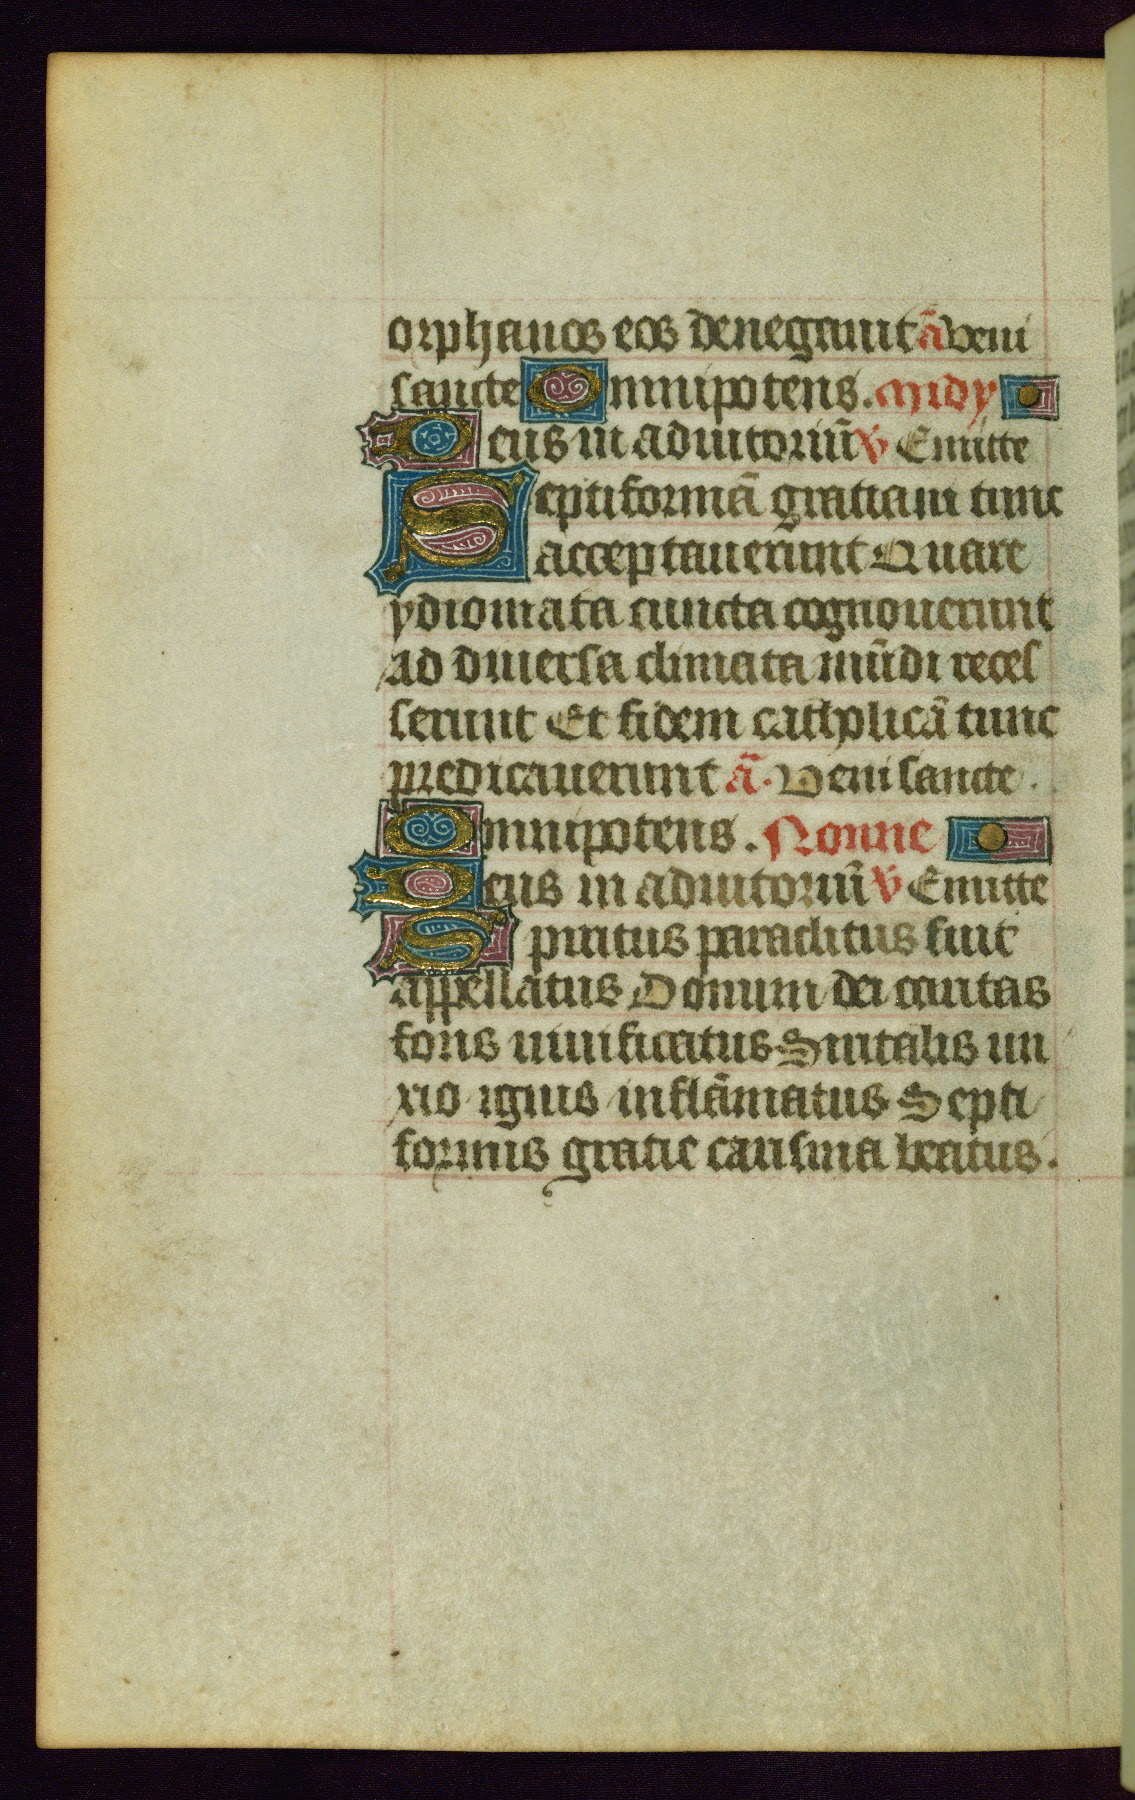 orphanos eos denegauit ã Veni
sancte Omnipotens. Midy
Deus in adiutoriũ ꝟ Emitte
Septiformã gratiam tunc
acceptauerunt Quare
ydiomata cuncta cognouerunt
ad diuersa climata mũdi reces
serunt Et fidem catholicã tunc
predicauerunt ã. Veni sancte.
Omnipotens. Nonne
Deus in adiutoriũ ꝟ Emitte
Spiritus paraclitus fuit
appellatus Donum dei caritas
fons uiuificatus Spiritalis un
xio ignis inflãmatus Septi
formis gratie carisma beatus.